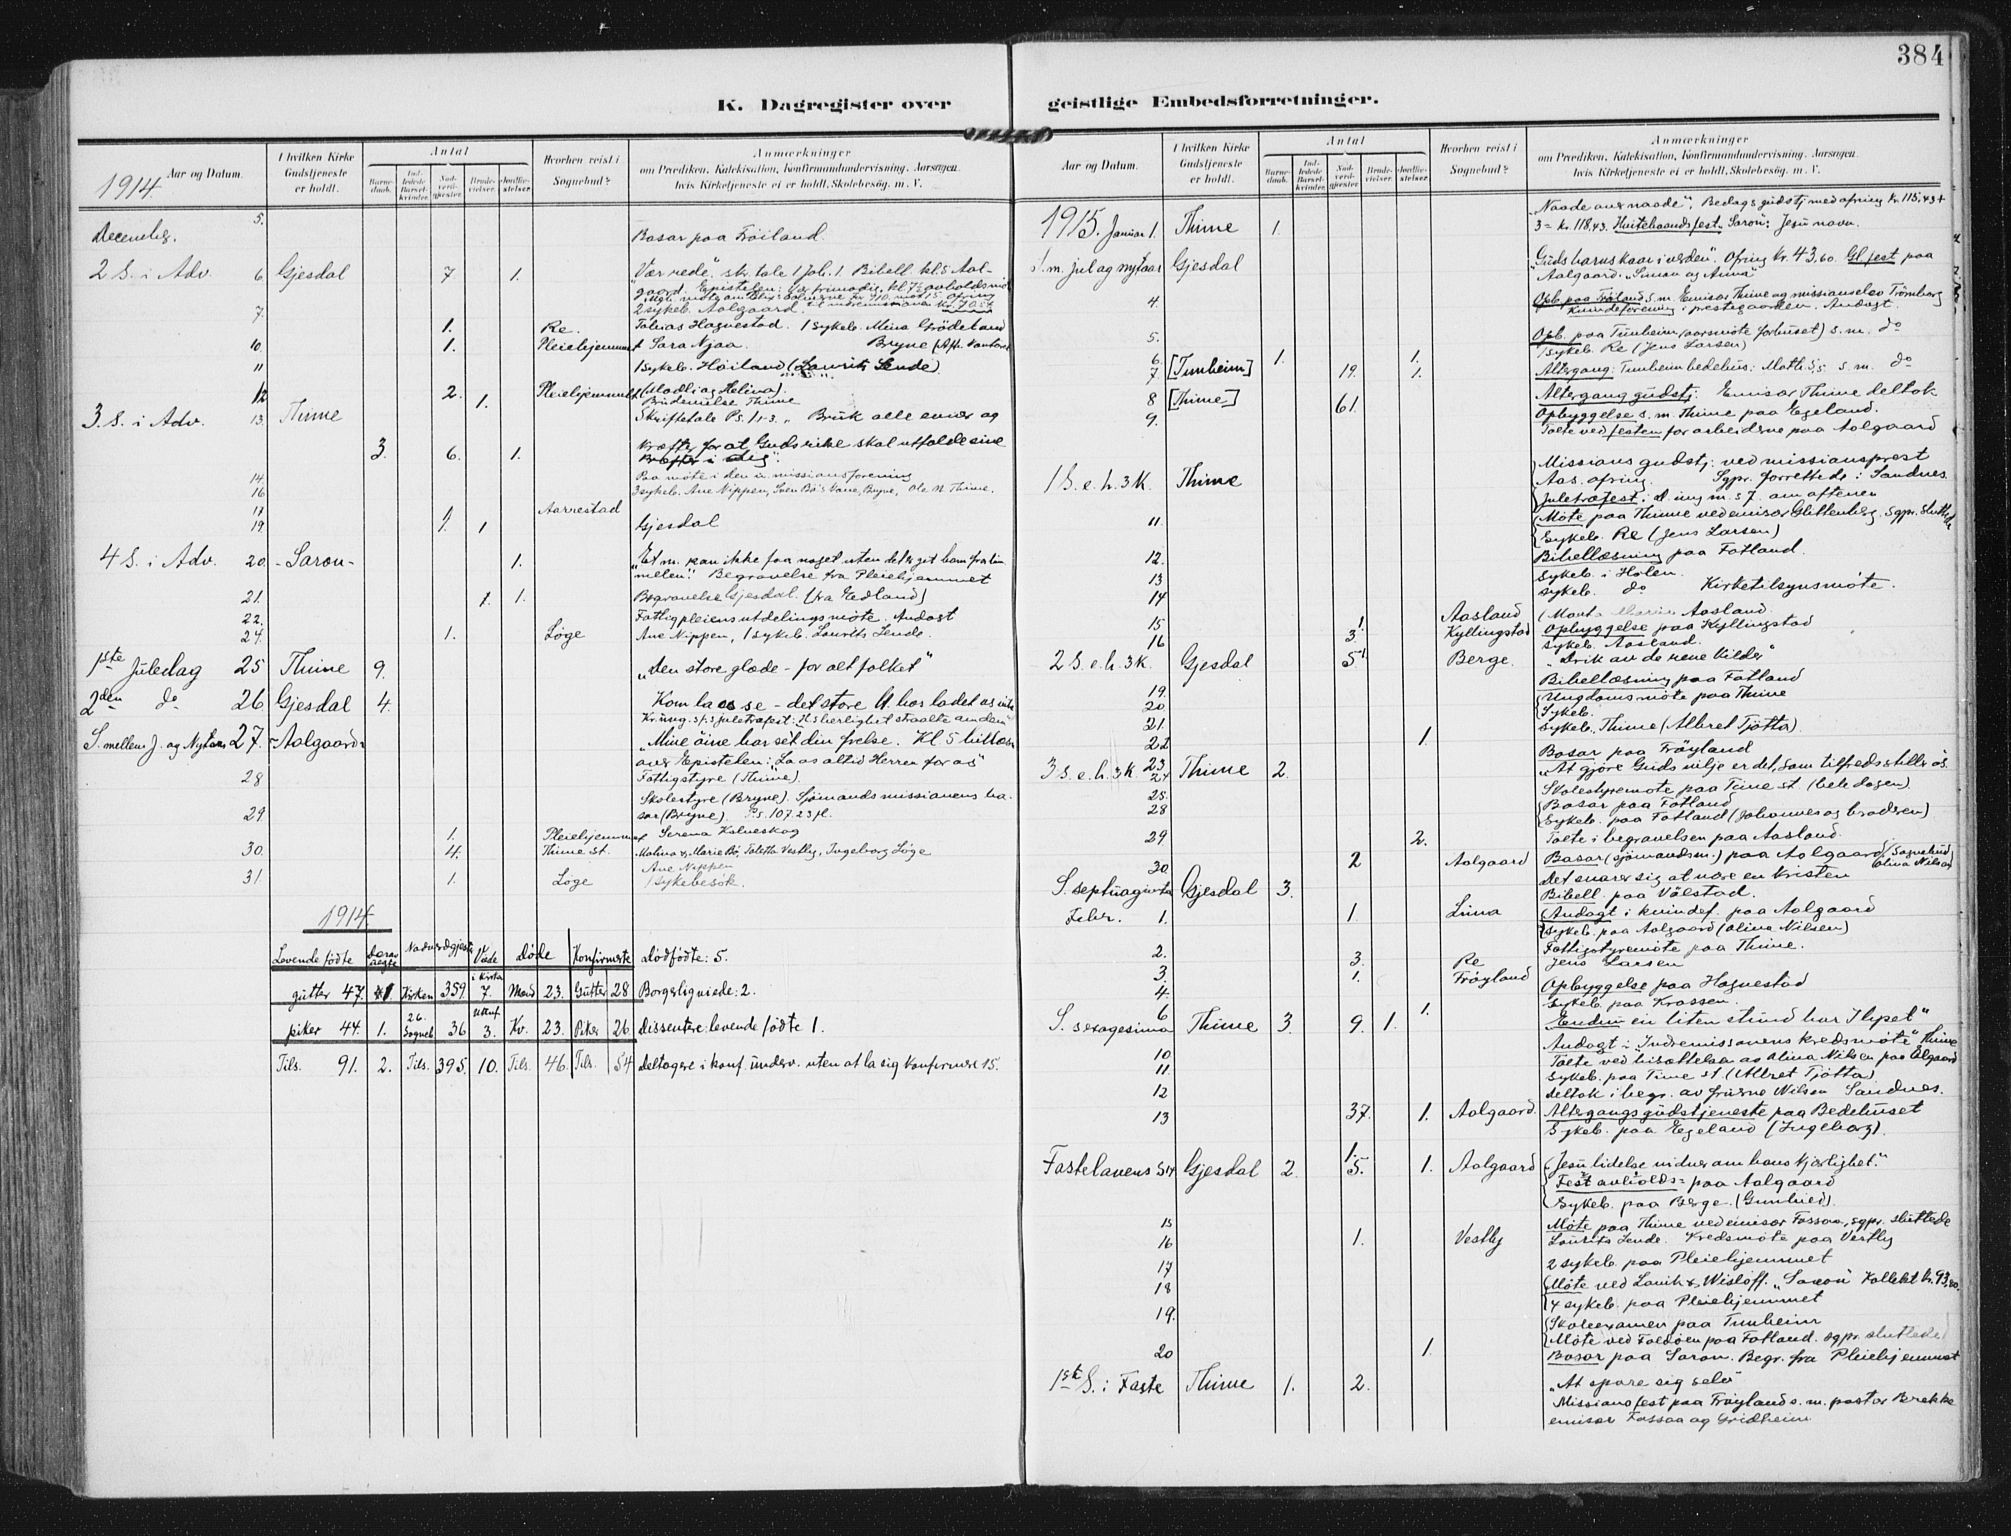 384
K. Dagregister over geistlige Embedsforretninger.
Aar og Datum.
I hvilken Kirke Gudstjeneste er holdt.
Antal
Barnedaab.
Indledede Barselkvinder.
Nadverdgjester.
Brudevielser.
Jordfæstelser.
Hvorhen reist i Sognebud?
Anmærkninger
om Prædiken, Katekisation, Konfirmandundervisning, Aarsagen, hvis Kirketjeneste ei er holdt, Skolebesøg, m. V.
1914
December. 5. Basar paa Fröiland
2 S. i Adv. 6 Gjesdal 7 1. "Vær rede" skr. tale 1 Joh. 1. Bibell. kl 5 Aal-
gaard. Epistelen:
7. 2 sykeb. Aalgaard.
1. Re. Tobias Hognestad. 1 sykeb. Mina Grödeland
10. 1. Pleiehjemmet Sara Njaa. Bryne
11 1 sykeb. Höiland (Laurits Lende)
12 2. Pleiehjemmet (Madli og Helina)
1. Brudevielse Thime
3. S. i Adv. 13. Thime Skriftetale Ps. 1 v. 3. "Bruk alle evner og
3. 6. 1. kræfter for at Guds rike skal utfolde sine
kræfter i dig".
14. Paa möte i den i. missionsforening
16 3 sykeb. Ane Nippen, Sven Bö's Kone, Bryne, Ole N. Thime.
17 1. Aarrestad
19. 1. 1 Gjesdal
4 S. i Adv. 20. -Saron- 1. "Et m. kan ikke faa noget uten det er git ham fra him
melen." Begravelse fra Pleiehjemmet
21. 1. 1. Begravelse Gjesdal. (fra Edland)
22. Fattigpleiens utdelingsmöte. Andagt
24. 1. Löge Ane Nippen, 1 sykeb. Laurits Lende.
1ste Juledag 25 Thime 9. "Den store glæde - for alt folket"
2den do 26 Gjesdal 4. Kom la os se - det store H. har ladet os vite
Kr. ung. s juletræfest: "Hs herlighet straalte om dem"
S. mellem J. og Nytaar 27. -Aalgaard- "Mine öine har set din frelse. Kl. 5 bibellæsn
over Epistelen: "La os altid Herren for os"
28 Fattigstyre (Thime).
Skolestyre (Bryne). Sjömandsmissionens ba-
29 sar (Bryne) Ps. 107. 23 fl.
1. Pleiehjemmet Serena Kalveskog
30. 4. Thime st. Malina & Marie Bö, Taletta Vestly, Ingeborg Löge
Ane Nippen
31. 1. Löge 1 sykebesök.
1914
Levende födte Derav uegte Nadverdgjester Viede döde Konfirmerte dödfödte: 5.
gutter 47. 1. Kirken 359. i Kirke 7. Mænd 23. Gutter 28 Borgerlig viede: 2.
piker 44. 1. 26. Sogneb. 36 utenf. 3. Kv. 23. Piker 26 Dissentere: levende födte 1.
Tils. 91. 2. Tils. 395. 10. Tils. 46. Tils. 54 deltagere i konf. underv. uten at la sig konfirmere 15.
Aar og Datum.
I hvilken Kirke Gudstjeneste er holdt.
Antal
Barnedaab.
Indledede Barselkvinder.
Nadverdgjester.
Brudevielser.
Jordfæstelser.
Hvorhen reist i Sognebud?
Anmærkninger
om Prædiken, Katekisation, Konfirmandundervisning, Aarsagen, hvis Kirketjeneste ei er holdt, Skolebesøg, m. V.
"Naade over naade". Bedags gudstj med ofring kr. 115,43 +
1915. Januar 1. Thime 1. 3 = kr. 118,43. Hvitebaandsfest "Saron": Jesu navn.
S. m. jul og nytaar Gjesdal Guds barns kaar i verden". Ofring kr. 43.60. Gl fest paa
"Aalgaard. "Simon og Anna"
4. Opb. paa Fröiland s. m. Emisær Thime og missionselev Trömborg
Kvindeforening i prestegaarden. Andagt
5. Opb. paa Tunheim, (aarsmöte forhuset) s. m. do
1 sykeb. Re (Jens Larsen)
6 1. 1.
7 [Tunheim] 19. 1. Altergang: Tunheim bedehus: Math. 5,5 s. m. do
8 [Thime] 61. Altergangsgudstj. Emisær Thime deltok
9. Opbyggelse s. m. Thime paa Egeland.
Talte ved festen for arbeiderne paa Aalgaard
Missions gudstj. ved missionsprest
1 S. e. h. 3 K. Thime Aas. ofring. Sgpr. forrettede i Sandnes.
Juletræfest i d. ung m. s 7. om aftenen
11. Möte paa Thime ved emisær Glittenberg. Sgpr. sluttede
Sykeb. Re (Jens Larsen)
12. Bibellæsning paa Fotland.
13 Sykeb. i Hölen.
14 Sykeb. do Kirketilsynsmöte.
15 1. Aasland Aasland.
16 3. Kyllingstad Opbyggelse paa Kyllingstad
Sykeb. Aasland.
2 S. e. h. 3 K. Gjesdal 5. Berge. "Drik av de rene kilder"
Bibellæsning paa Fotland
19. Ungdomsmöte paa Thime
20. Sykeb.
21. Sykeb. Thime (Albret Tjötta)
22 1.
23 Basar paa Fröyland
3 S. e. h. 3 K. 24 Thime 2. "At gjöre Guds vilje er det, som tilfredsstiller os.
25. Skolestyremöte paa Time st (hele dagen)
28 Basar paa Fotland
Sykeb. paa Fotland (Johannes og brodren)
29 2. Talte i begravelsen paa Aasland.
30 2 Aalgaard Basar (sjömandsm.) paa Aalgaard Sognebud Olina Nilsen
S. septuagesima Gjesdal 3. Det svarer sig at være en kristen
Bibell. paa Välstad.
Febr. 1. 1. Lima Andagt i kvindef. paa Aalgaard
Sykeb. paa Aalgaard (Olina Nilsen)
2. Fattigstyremöte paa Thime.
3. 3. Re Jens Larsen
4. 1. Fröyland Opbyggelse paa Hognestad
6 1. Sykeb. paa Krossen.
S. sexagesima Thime 3. 9. 1. "Endnu en liten stund har I lyset"
Andagt i Indremissionens kredsmöte" Thime
10 Talte ved bisættelsen av Olina Nilsen paa Ålgaard
11. Sykeb. paa Time st (Albret Tjötta)
12 deltok i begr. av fru Nilsen Sandnes.
13 37. 1. Aalgaard. Altergangsgudstjeneste paa Bedehuset
Sykeb. paa Egeland (Ingeborg).
1.
Fastelavens S 14 Gjesdal 2. 5. 1. Aalgaard "Jesu lidelse vidner om hans kjærlighet."
Fest avholds= paa Aalgaard
Sykeb. paa Berge. (Gunhild)
15 Möte paa Thime ved emisær Fossaa, sgpr. sluttede
16 1. Vestly Laurits Lende. Kredsmöte paa Vestly
17 2 sykeb. paa Pleiehjemmet
18 Möte ved Lavik & Wislöff. "Saron" Kollekt kr. 93,80.
4 sykeb. paa Pleiehjemmet
19. Skoleexamen paa Tunheim
Möte ved Foldöen paa Fotland. sgpr. sluttede
20 1. Basar paa Saron. Begr. fra Pleiehjemmet
1ste S. i Faste Thime 1. 2. "At spare sig selv"
Missionsfest paa Fröyland s. m. pastor Brekke
emisær Fossaa og Gridheim